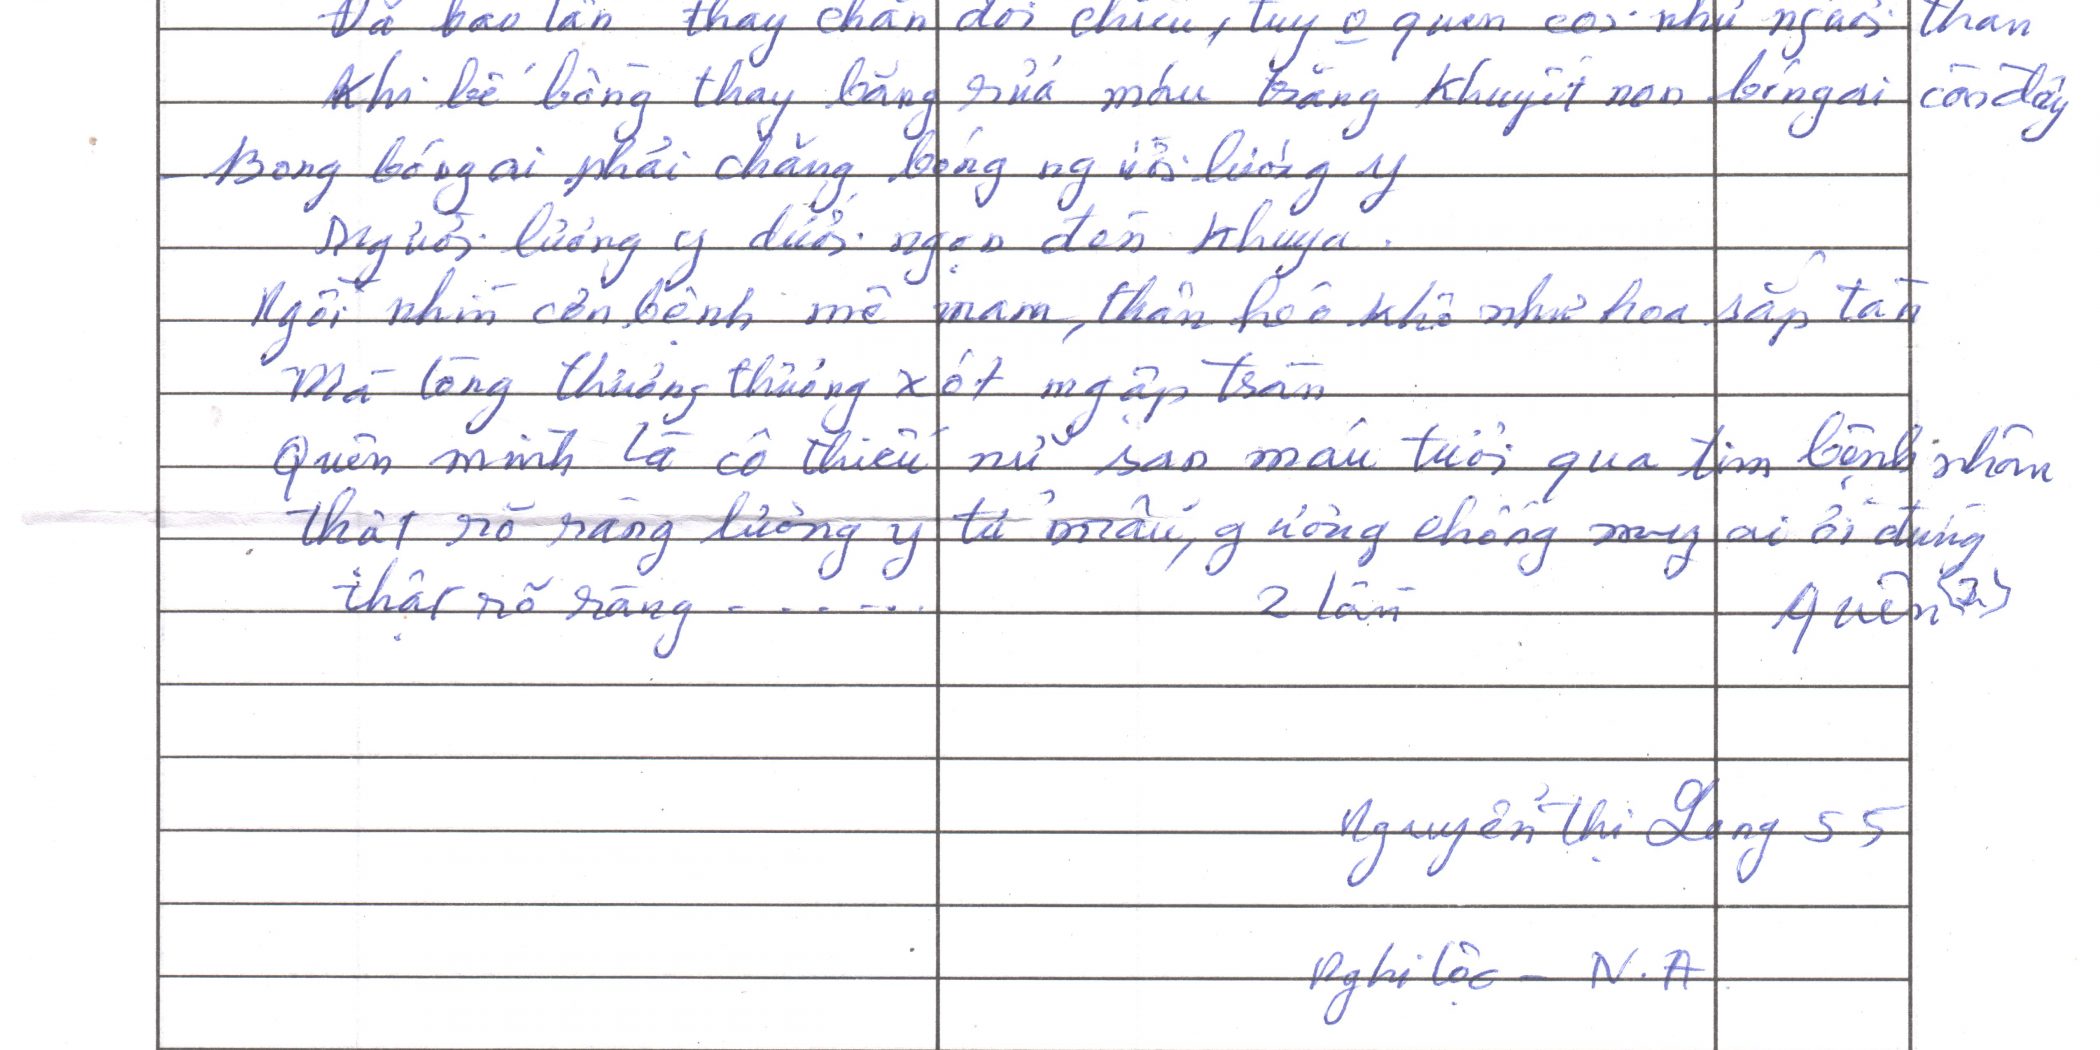 Đã bao lần thay chăn đổi chiếu, tuy o quen coi như người thân
Khi bế bồng thay băng rửa máu trăng khuyết non bóng ai còn đây
- Bong bóng ai phải chăng bóng người lương y
Người lương y dưới ngọn đèn khuya.
Ngồi nhìn cơn bệnh mê mam, thân héo khô như hoa sắp tàn
Mà lòng thường thương xót ngập tràn
Quên mình là cô thiếu nữ san máu tươi qua tim bệnh nhân
Thật rõ ràng lương y từ mẫu, giường chống may ai ơi đừng
thật rõ ràng ....... 2 lần Quên (2)
Nguyễn Thị Long 55
Nghi lộc - N.A